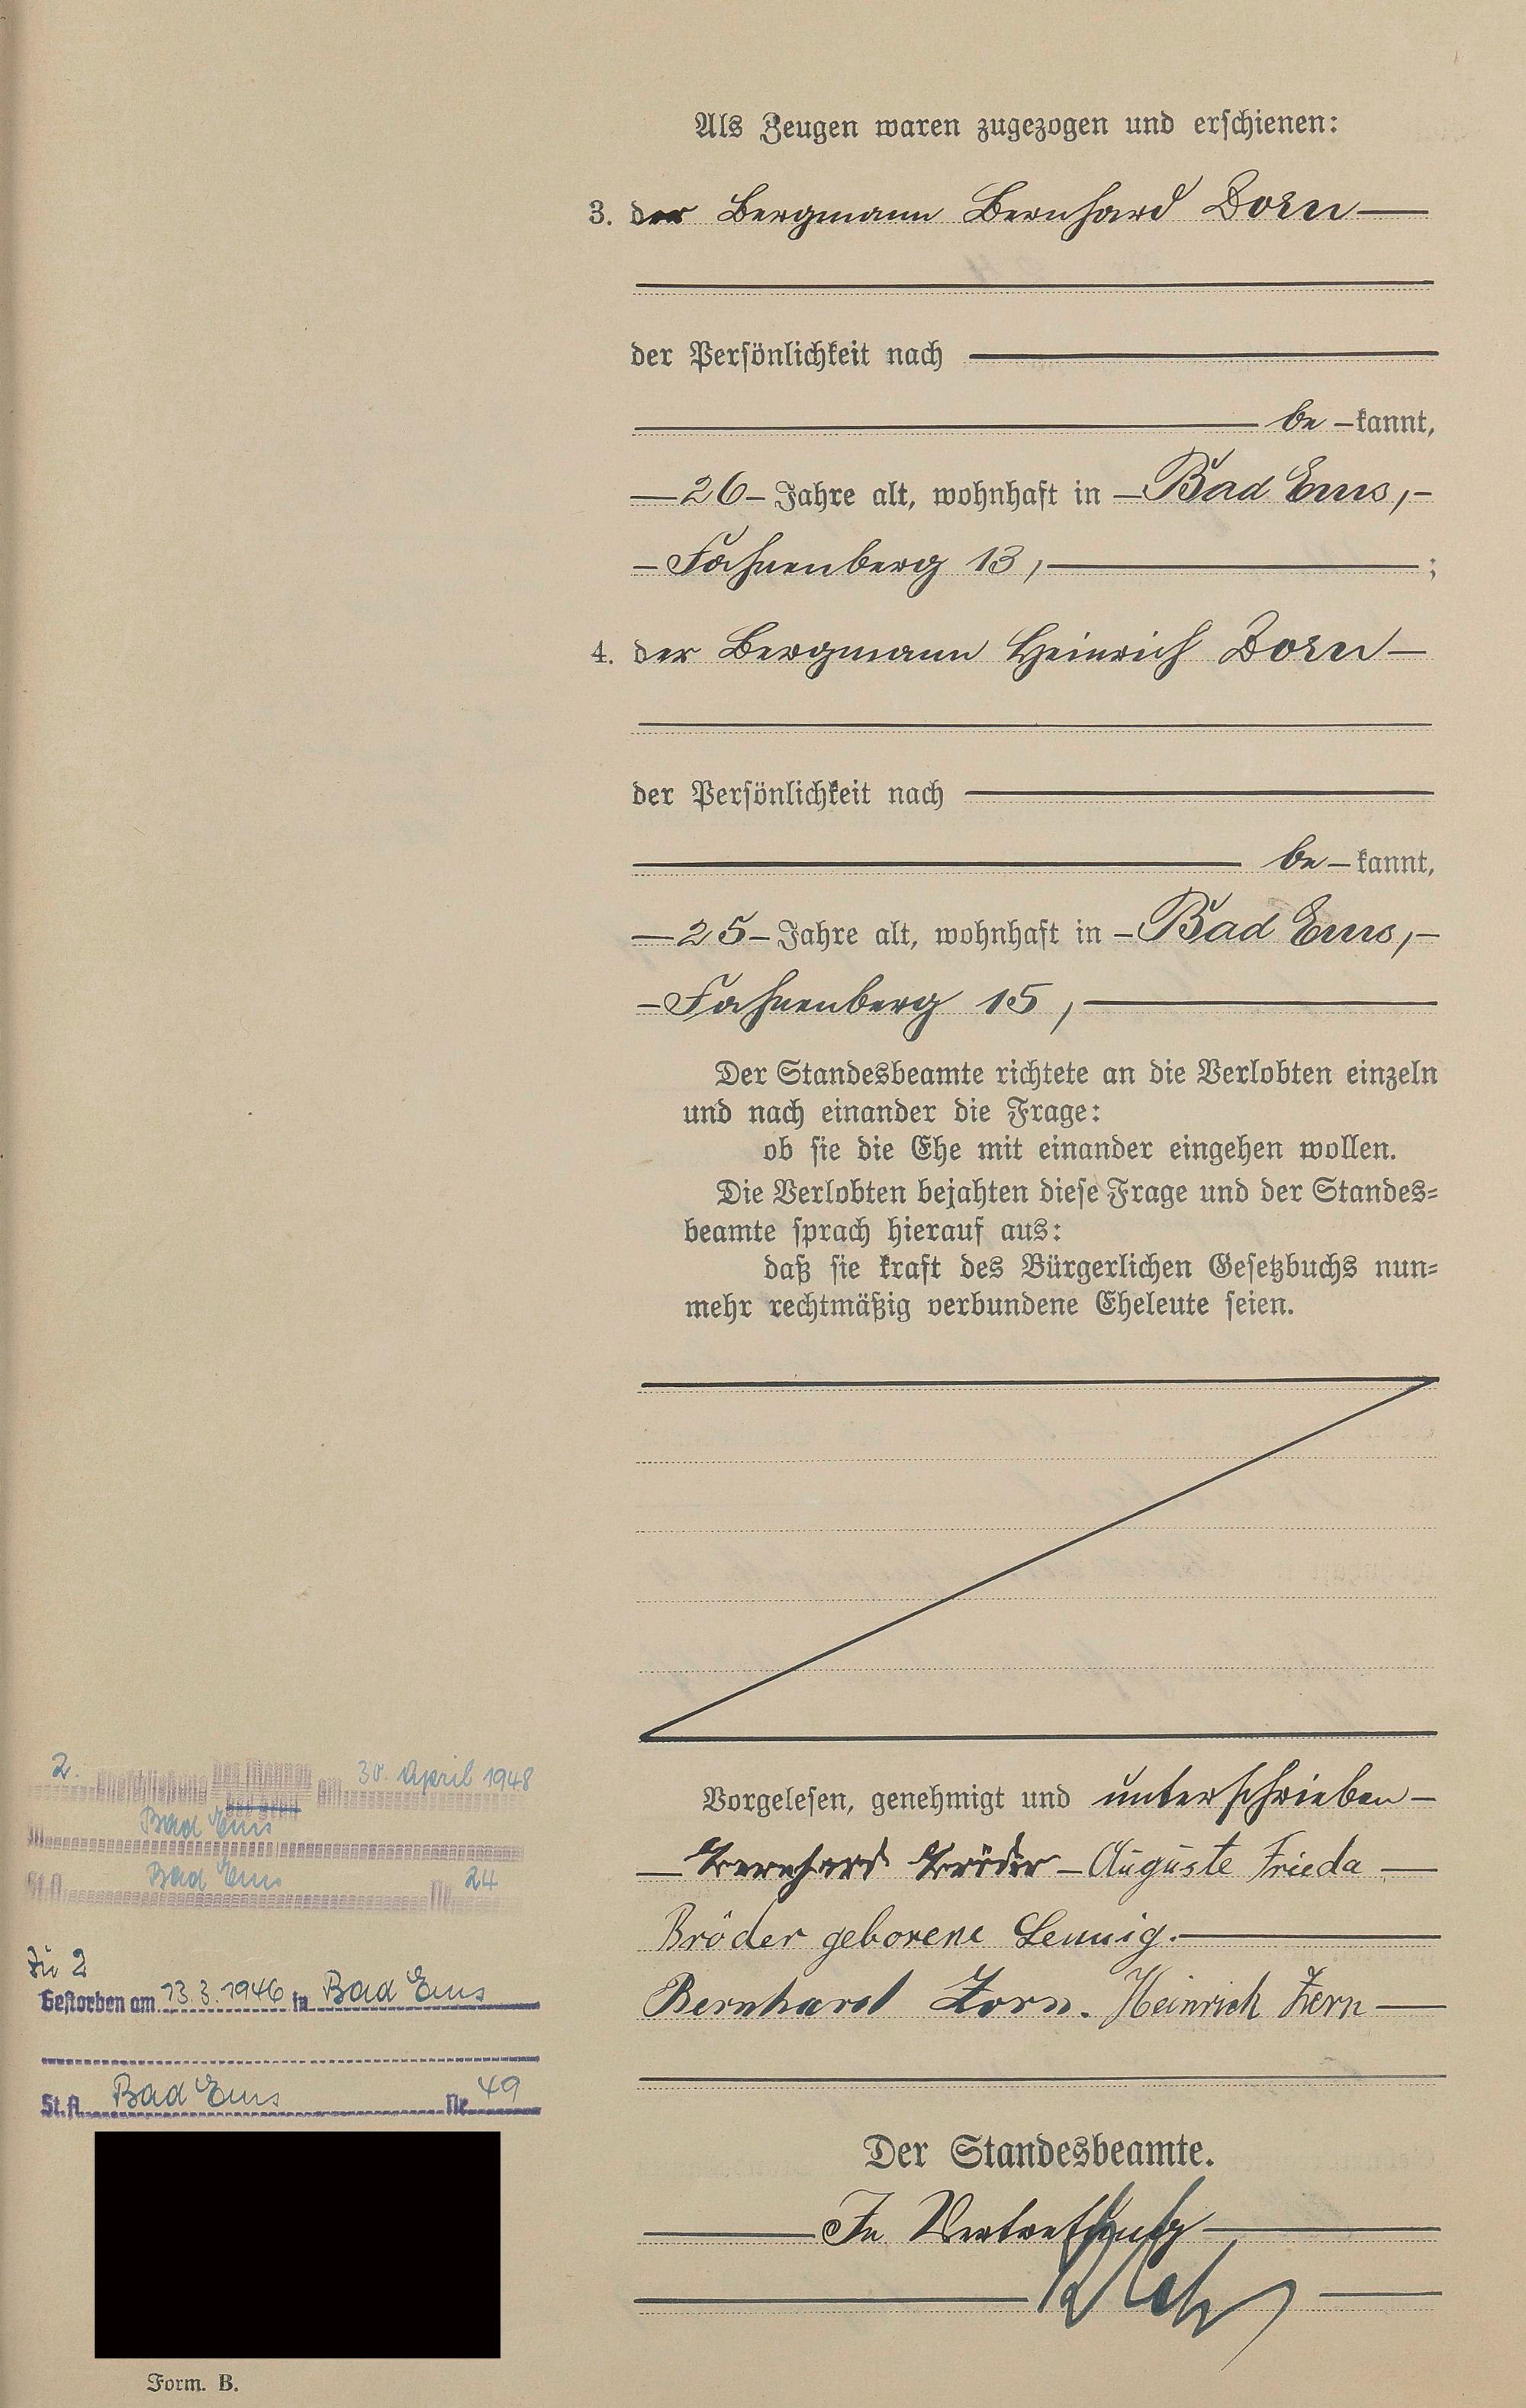 Als Zeugen waren zugezogen und erschienen:
3. der Bergmann Bernhard Zorn
der Persönlichkeit nach
be kannt,
26 Jahre alt, wohnhaft in Bad Ems,
Fahnenberg 13, ;
4. der Bergmann Heinrich Zorn
der Persönlichkeit nach
be kannt,
25 Jahre alt, wohnhaft in Bad Ems,
Fahnenberg 15,
Der Standesbeamte richtete an die Verlobten einzeln
und nach einander die Frage:
ob sie die Ehe mit einander eingehen wollen.
Die Verlobten bejahten diese Frage und der Standes-
beamte sprach hierauf aus:
daß sie kraft des Bürgerlichen Gesetzbuchs nun-
mehr rechtmäßig verbundene Eheleute seien.
Vorgelesen, genehmigt und unterschrieben
Bernhard Bröder Auguste Frieda
Bröder geborene Lennig.
Bernhard Zorn. Heinrich Zorn
Der Standesbeamte.
In Vertretung
2. Eheschließung des Mannes am 30. April 1948
Bad Ems
St.A. Bad Ems Nr. 24
Zu 2
Gestorben am 13.3.1946 in Bad Ems
St.A. Bad Ems Nr. 49
Form. B.